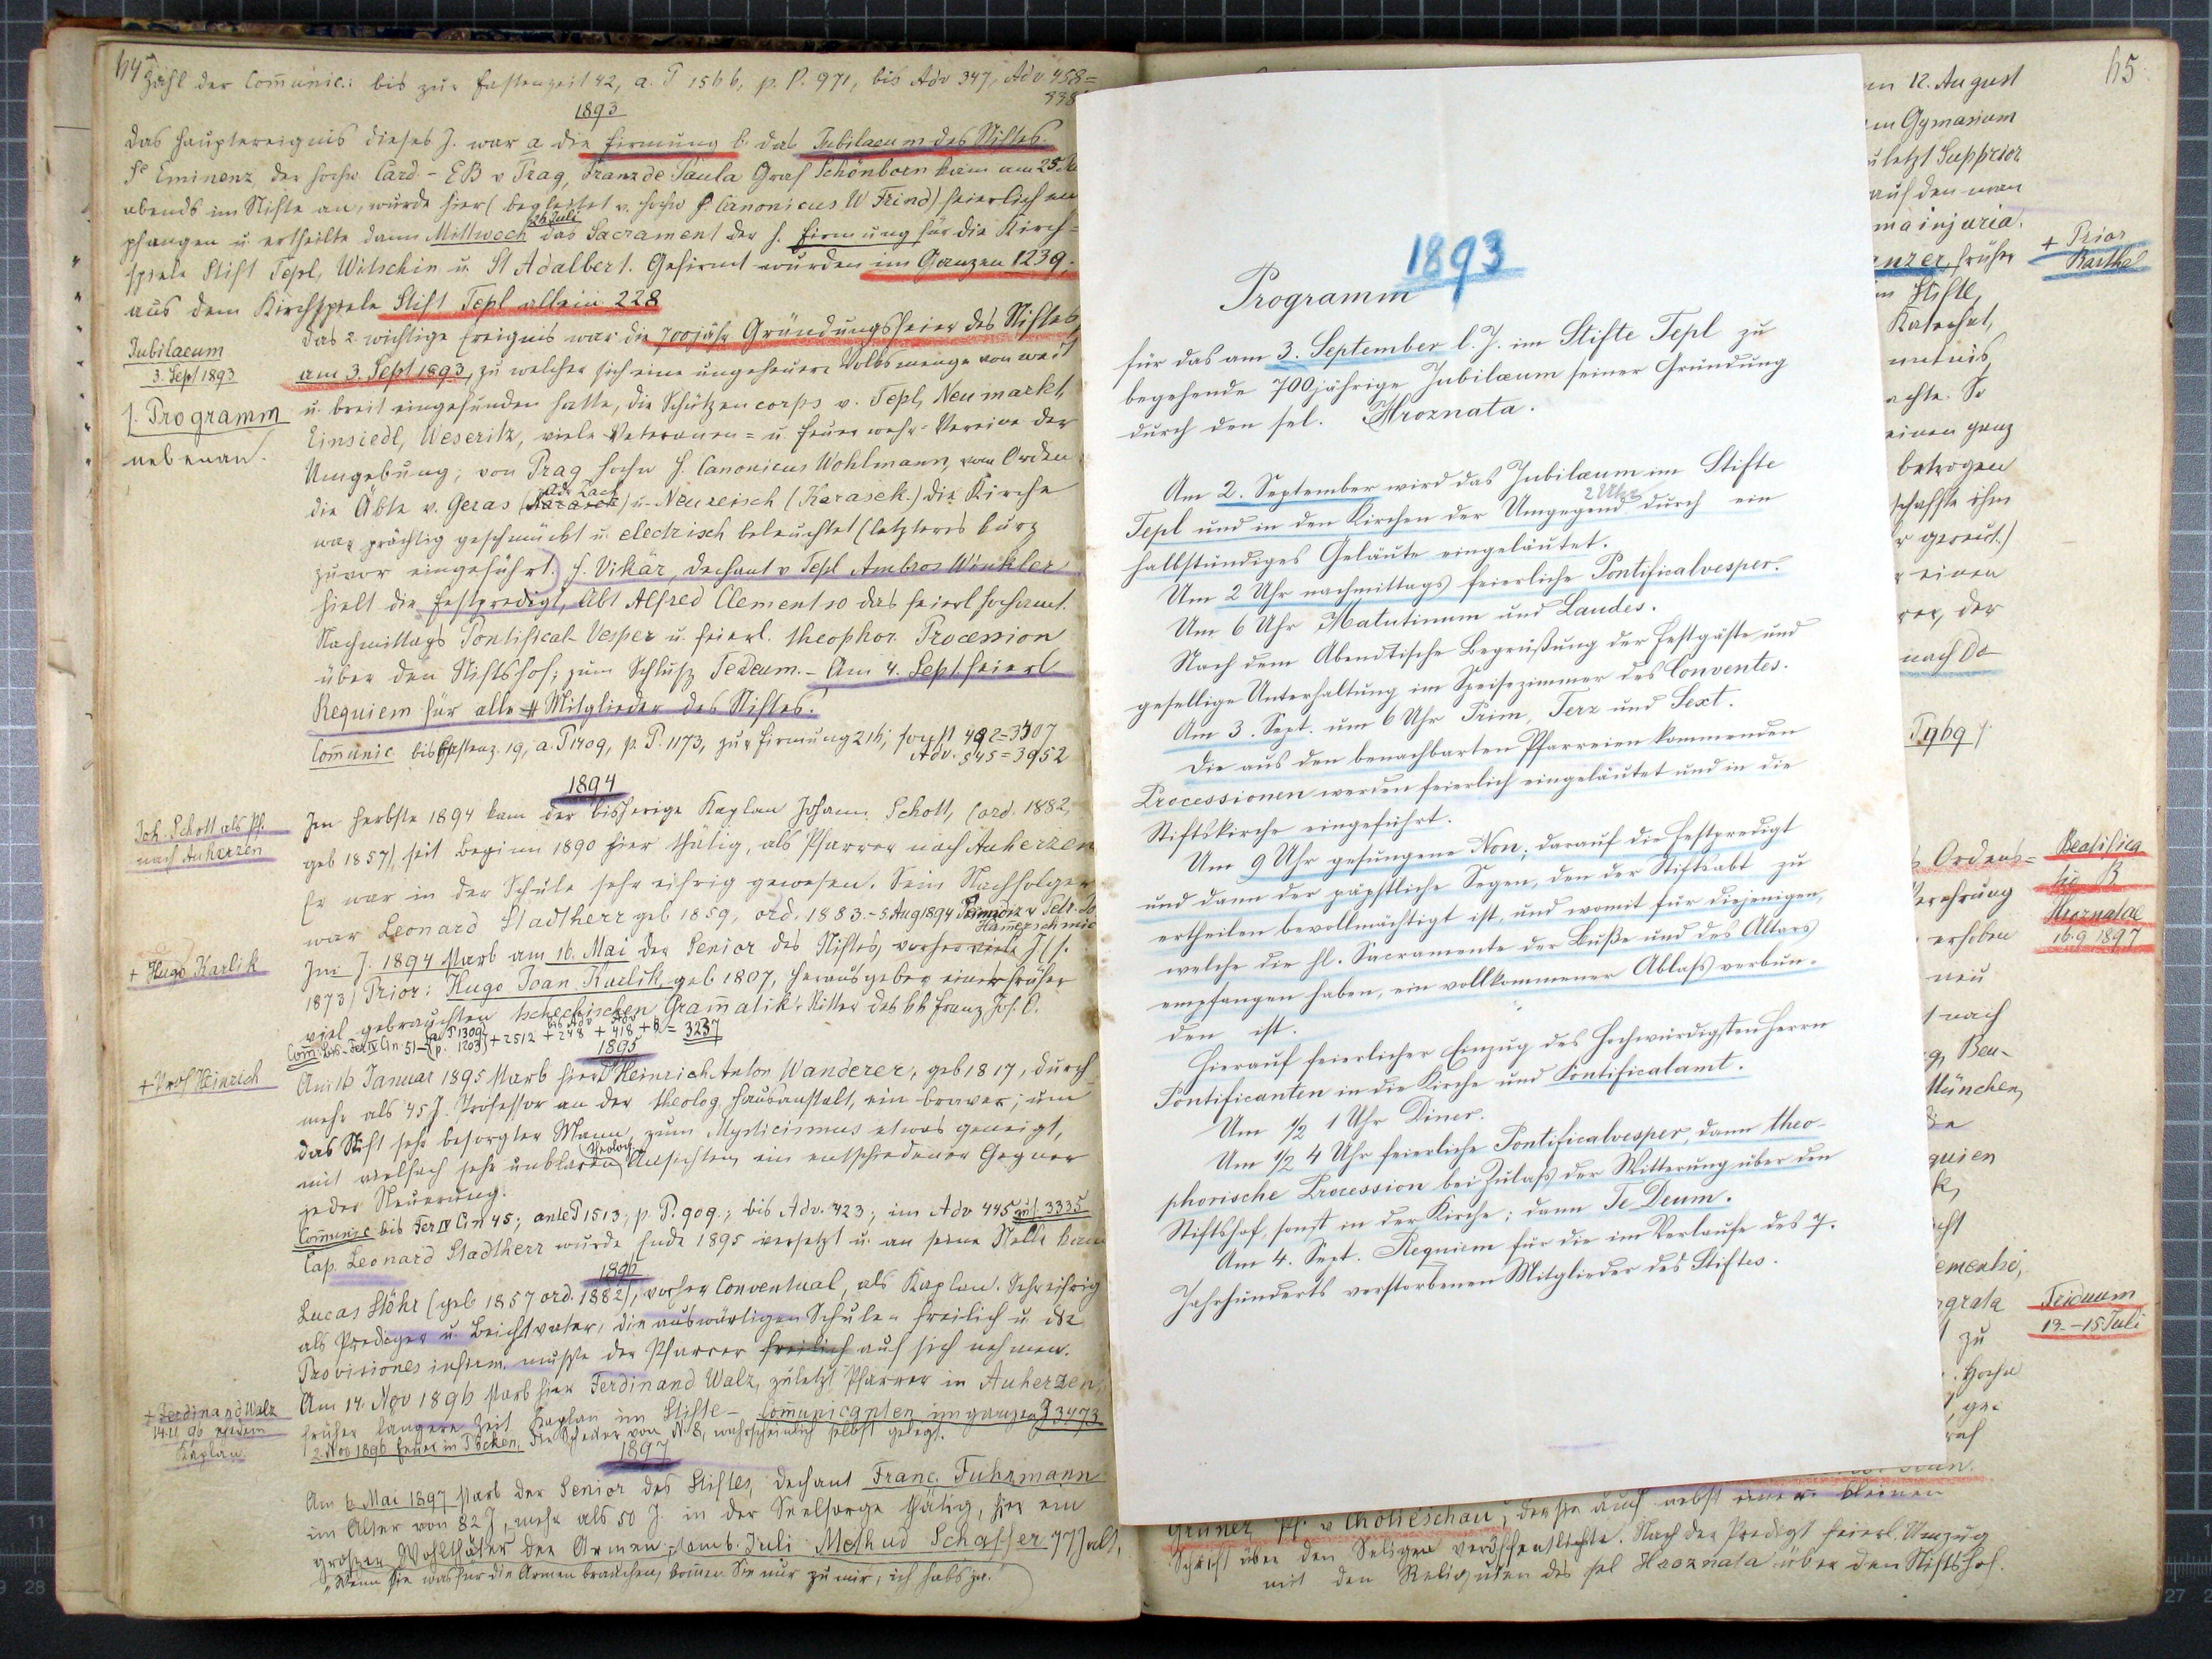 64
Zahl der Com̄unic.: bis zur Fastenzeit 42, a. P 1566, p. P. 971, bis Adv 347, Adv 458=
1893
Das Hauptereignis dieses J. war a die Firmung b. das Jubilaeum des Stiftes.
Se Eminenz, der hochw. Card.-EB v Prag, Franz de Paula Graf Schönborn kam am 25.
abends im Stifte an, wurde hier (begleitet v. hochw H. Canonicus W Frind) feierlich em
pfangen u. ertheilte dann Mittwoch 26 Juli das Sacrament der h. Firmung für die Kirch=
spiele Stift Tepl, Witschin u. St Adalbert. Gefirmt wurden im Ganzen 1239,
aus dem Kirchspiele Stift Tepl allein 228
Jubilaeum
3. Sept 1893
f. Programm
nebenan.
Das 2. wichtige Ereignis war die 700jähr Gründungsfeier des Stiftes,
am 3. Sept 1893, zu welcher sich eine ungeheuere Volksmenge von weit
u. breit eingefunden hatte, die Schützencorps v. Tepl, Neumarkt,
Einsiedl, Weseritz, viele Veteranen= u. Feuerwehr-Vereine der
Umgebung; von Prag hochw H. Canonicus Wohlmann, vom Orden
die Äbte v. Geras (Adr Zach) u. Neureisch (Karasek.) Die Kirche
war prächtig geschmückt u. electrisch beleuchtet (letzteres kurz
zuvor eingeführt.) H. Vikär, Dechant v Tepl Ambros Winkler
hielt die Festpredigt, Abt Alfred Clementso das feierl Hochamt.
Nachmittags Pontifical-Vesper u. feierl. theophor. Procession
über den Stiftshof; zum Schluss Tedeum. - Am 4. Sept. feierl
Requiem für alle † Mitglieder des Stiftes.
Com̄unic bis Fastenz. 19, a. P 1409, p. P. 1173, zur Firmung 216, sonst 492=3307
Adv. 545=3952
1894
Joh. Schott als Pf.
nach Auherzen
Im Herbste 1894 kam der bisherige Kaplan Johann Schott, (ord. 1882,
geb 1857), seit Beginn 1890 hier thätig, als Pfarrer nach Auherzen
Er war in der Schule sehr eifrig gewesen. Sein Nachfolger
war Leonard Stadtherr geb 1859, ord. 1883. - 5 Aug 1894 Primiz v Petr.
Ham̄erschmie
+ Hugo Karlik
Im J. 1894 starb am 16. Mai der Senior des Stiftes, vorher viele J (s.
1873) Prior: Hugo Joan Karlik geb 1807, Herausgeber einer früher
viel gebrauchten tschechischen Gram̄atik, Ritter des kk Franz Jos. O.
Com̄. bis Fer IV Cin 51 - (a P 1309 p. 1203) + 2512 + bis Adv 248 + Adv 418 + 8 = 3237
1895
+ Prof Heinrich
Am 16 Januar 1895 starb hier P Heinrich Anton Wanderer, geb 1817, durch
mehr als 45 J. Professor an der theolog Hausanstalt, ein braver, um
das Stift sehr besorgter Mann, zum Mysticismus etwas geneigt,
mit vielfach sehr unklaren theolog. Ansichten, ein entschiedener Gegner
jeder Neuerung.
Com̄unic bis Fer IV Cin 45; ante P 1513; p. P. 909.; bis Adv. 423; im Adv 445 zus. 3335
Cap. Leonard Stadtherr wurde Ende 1895 versetzt u. an seine Stelle kam
1896
Lucas Stöhr (geb 1857 ord. 1882), vorher Conventual, als Kaplan. Sehr eifrig
als Prediger u. Beichtvater, die auswärtigen Schulen freilich u. die
Provisiones infirm. musste der Pfarrer freilich auf sich nehmen.
+ Ferdinand Walz
14.11 96 ehdem
Kaplan
Am 14. Nov 1896 starb hier Ferdinand Walz, zuletzt Pfarrer in Auherzen,
früher längere Zeit Kaplan im Stifte - Com̄unicanten im ganzen J 3473
2. Nov 1896 Feuer in Pöcken, die Scheuer von N. 8, wahrscheinlich selbst gelegt.
1897
Am 6 Mai 1897 starb der Senior des Stiftes, Dechant Franc. Fuhrmann
im Alter von 82 J, mehr als 50 J. in der Seelsorge thätig, hier ein
grosser Wohlthäter der Armen, am 6. Juli Methud Schaffer 77J alt,
"Wenn Sie was für die Armen brauchen, kom̄en Sie nur zu mir, ich habs ja."
1893
Programm
für das am 3. September l. J. im Stifte Tepl zu
begehende 700jährige Jubilaeum seiner Gründung
durch den sel. Hroznata.
Am 2. September wird das Jubilaeum im Stifte
Tepl und in den Kirchen der Umgegend 2 Uhr durch ein
halbstündiges Geläute eingeläutet.
Um 2 Uhr nachmittags feierliche Pontificalvesper.
Um 6 Uhr Matutinum und Laudes.
Nach dem Abendtische Begrüßung der Festgäste und
gesellige Unterhaltung im Speisezimmer des Conventes.
Am 3. Sept. um 6 Uhr Prim, Terz und Sext.
Die aus den benachbarten Pfarreien kommenden
Processionen werden feierlich eingeläutet und in die
Stiftskirche eingeführt.
Um 9 Uhr gesungene Non; darauf die Festpredigt
und dann der päpstliche Segen, den der Stiftsabt zu
ertheilen bevollmächtigt ist, und womit für diejenigen,
welche die hl. Sacramente der Buße und des Altars
empfangen haben, ein vollkommener Ablass verbun-
den ist.
Hierauf feierlicher Einzug des Hochwürdigsten Herrn
Pontificanten in die Kirche und Pontificalamt.
Um ½ 1 Uhr Diner.
Um ½ 4 Uhr feierliche Pontificalvesper, dann theo-
phorische Procession bei Zulass der Witterung über den
Stiftshof, sonst in der Kirche; dann Te Deum.
Am 4. Sept. Requiem für die im Verlaufe des 7.
Jahrhunderts verstorbenen Mitglieder des Stiftes.
65.
12. August
Gymnasium
zuletzt Supprior
auf den man
injuria.
früher
+ Prior
Barthl
Stifte,
Katechet,
machte. So
einen ganz
betrogen
schaffte ihm
gereist.)
einen
der
nach Do
P. 969
Ordens=
Verehrung
erhoben
neu
nach
Beatifica
tio B
Hroznatae
16.9 1897
Beu-
München,
zu
Hochw
Triduum
13.-15 Juli
Gruner, Pf. v Chotieschau, der sie auch nebst einer kleinen
Schrift über den Seligen veröffentlichte. Nach der Predigt feierl. Umzug
mit den Reliquien des sel Hroznata über den Stiftshof.